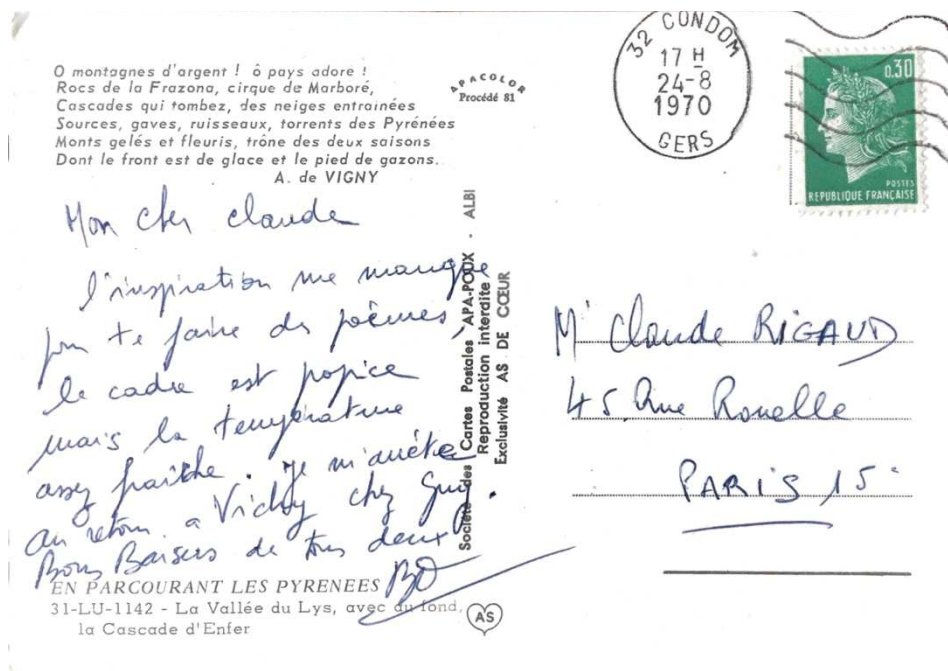 O montagnes d'argent ! ô pays adore !
Rocs de la Frazona, cirque de Marboré,
Cascades qui tombez, des neiges entrainées
Sources, gaves, ruisseaux, torrents des Pyrénées
Monts gelés et fleuris, trône des deux saisons
Dont le front est de glace et le pied de gazons.
A. de VIGNY
APACOLOR
Procédé 81
32 CONDOM
17 H
24-8
1970
GERS
0,30
POSTES
REPUBLIQUE FRANÇAISE
Mon cher Claude
l'inspiration me manque
pour te faire des poèmes
le cadre est popice
mais la température
assez fraîche. Je m'arrête
au retour a Vichy chez Guy.
Bons Baisers de tous deux
Société des Cartes Postales APA-POUX - ALBI
Reproduction interdite
Exclusivité AS DE CŒUR
Mr Claude RIGAUD
45 Rue Rouelle
PARIS 15e
EN PARCOURANT LES PYRENEES
31-LU-1142 - La Vallée du Lys, avec au fond,
la Cascade d'Enfer
AS